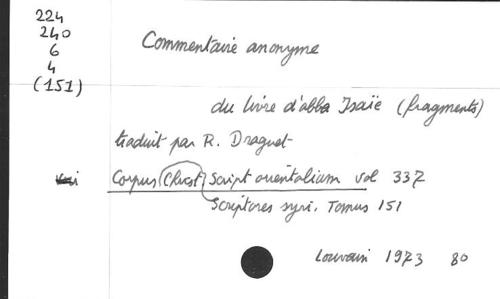 224
240
6
4
(151)
Commentaire anonyme
du livre d'abba Isaïe (fragments)
traduit par R. Draguet
Corpus Christ Script orientalium vol 337
Scriptores syri. Tomus 151
Louvain 1973 80